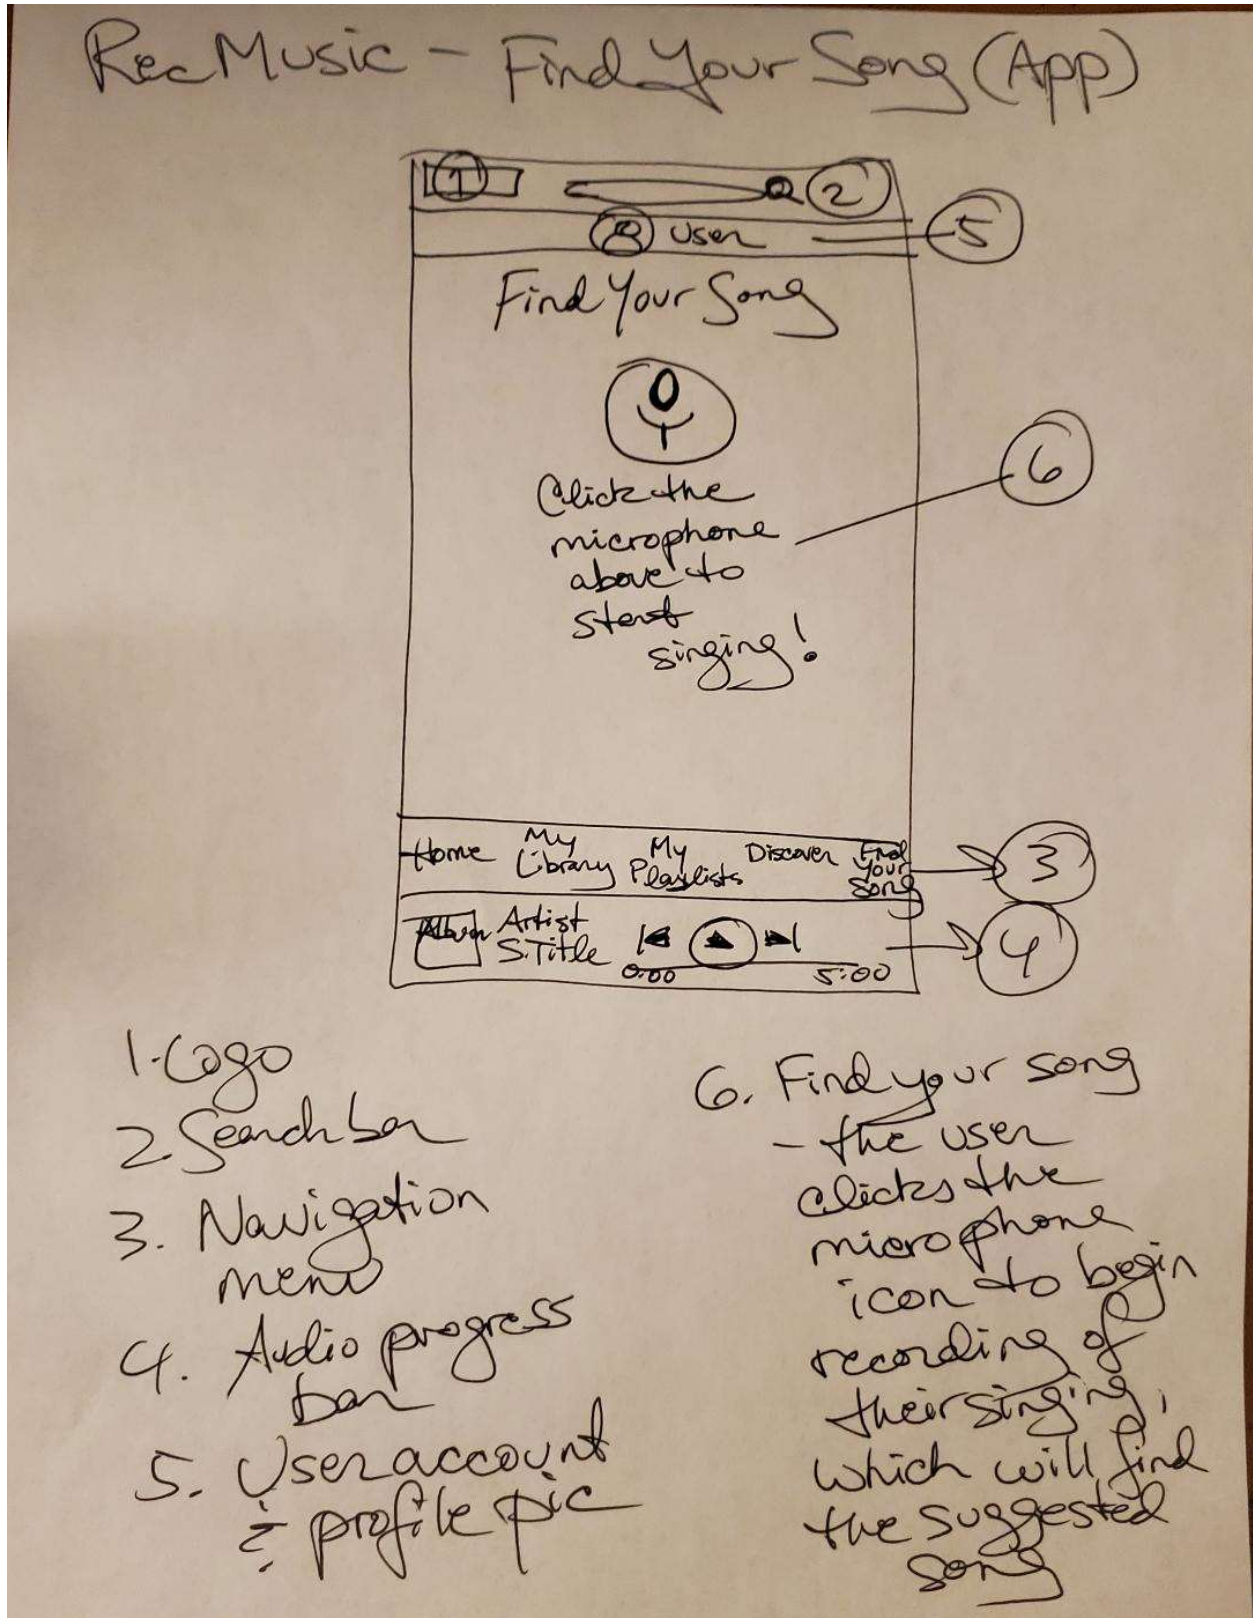 RecMusic - Find Your Song (App)
1
2
User
5
Find Your Song
Click the
microphone
above to
start
singing!
6
Home
My
Library
My
Playlists
Discover
Find
Your
Song
3
Album
Artist
S.Title
0:00
5:00
4
1. Logo
2. Search bar
3. Navigation
menu
4. Audio progress
bar
5. User account
& profile pic
6. Find your song
- the user
clicks the
microphone
icon to begin
recording of
their singing,
which will find
the suggested
song